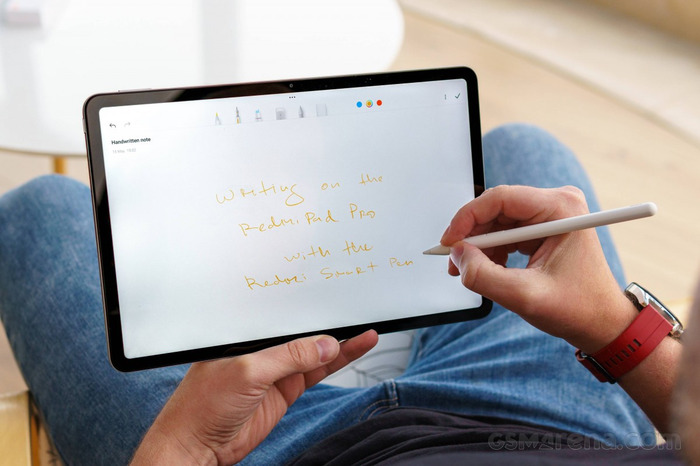 Handwritten note
Writing on the
Redmi Pad Pro
with the
Redmi Smart Pen
GSMArena.com